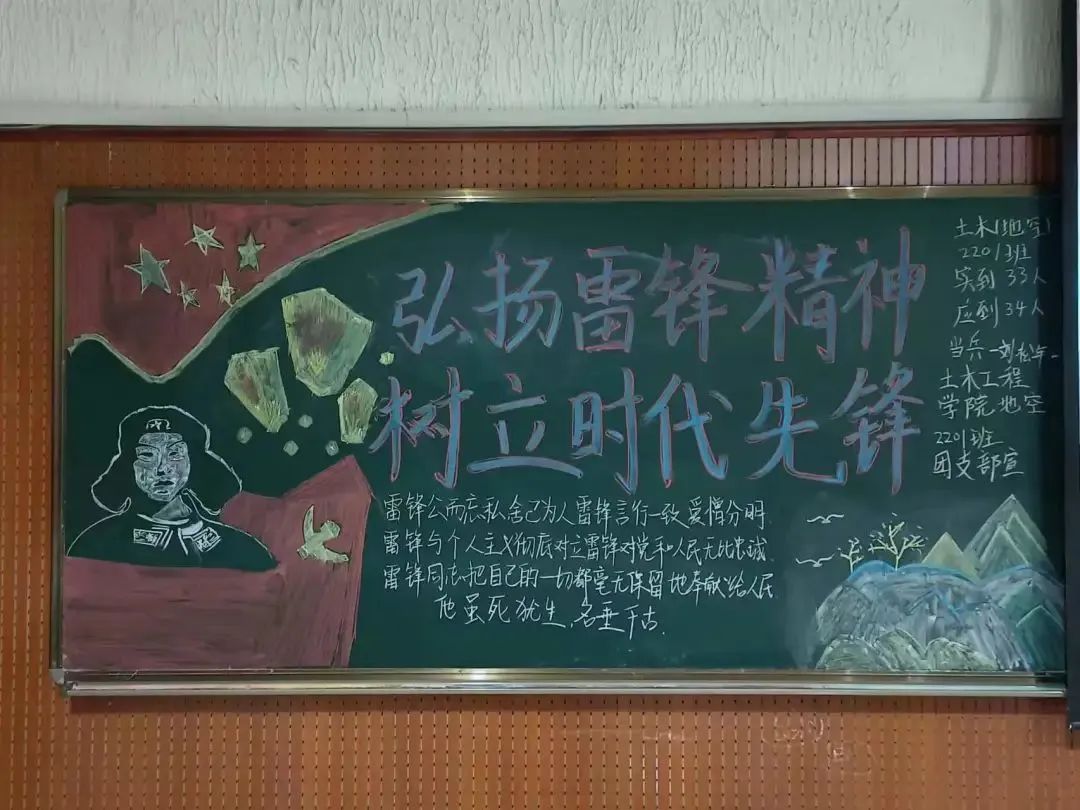 弘扬雷锋精神
树立时代先锋
雷锋公而忘私舍己为人雷锋言行一致爱憎分明.
雷锋与个人主义彻底对立雷锋对党和人民无比忠诚.
雷锋同志把自己的一切都毫无保留地奉献给人民.
他虽死犹生,名垂千古.
土木(地空)
2201班
实到33人
应到34人
当兵一刘
土木工程
学院地空
2201班
团支部宣